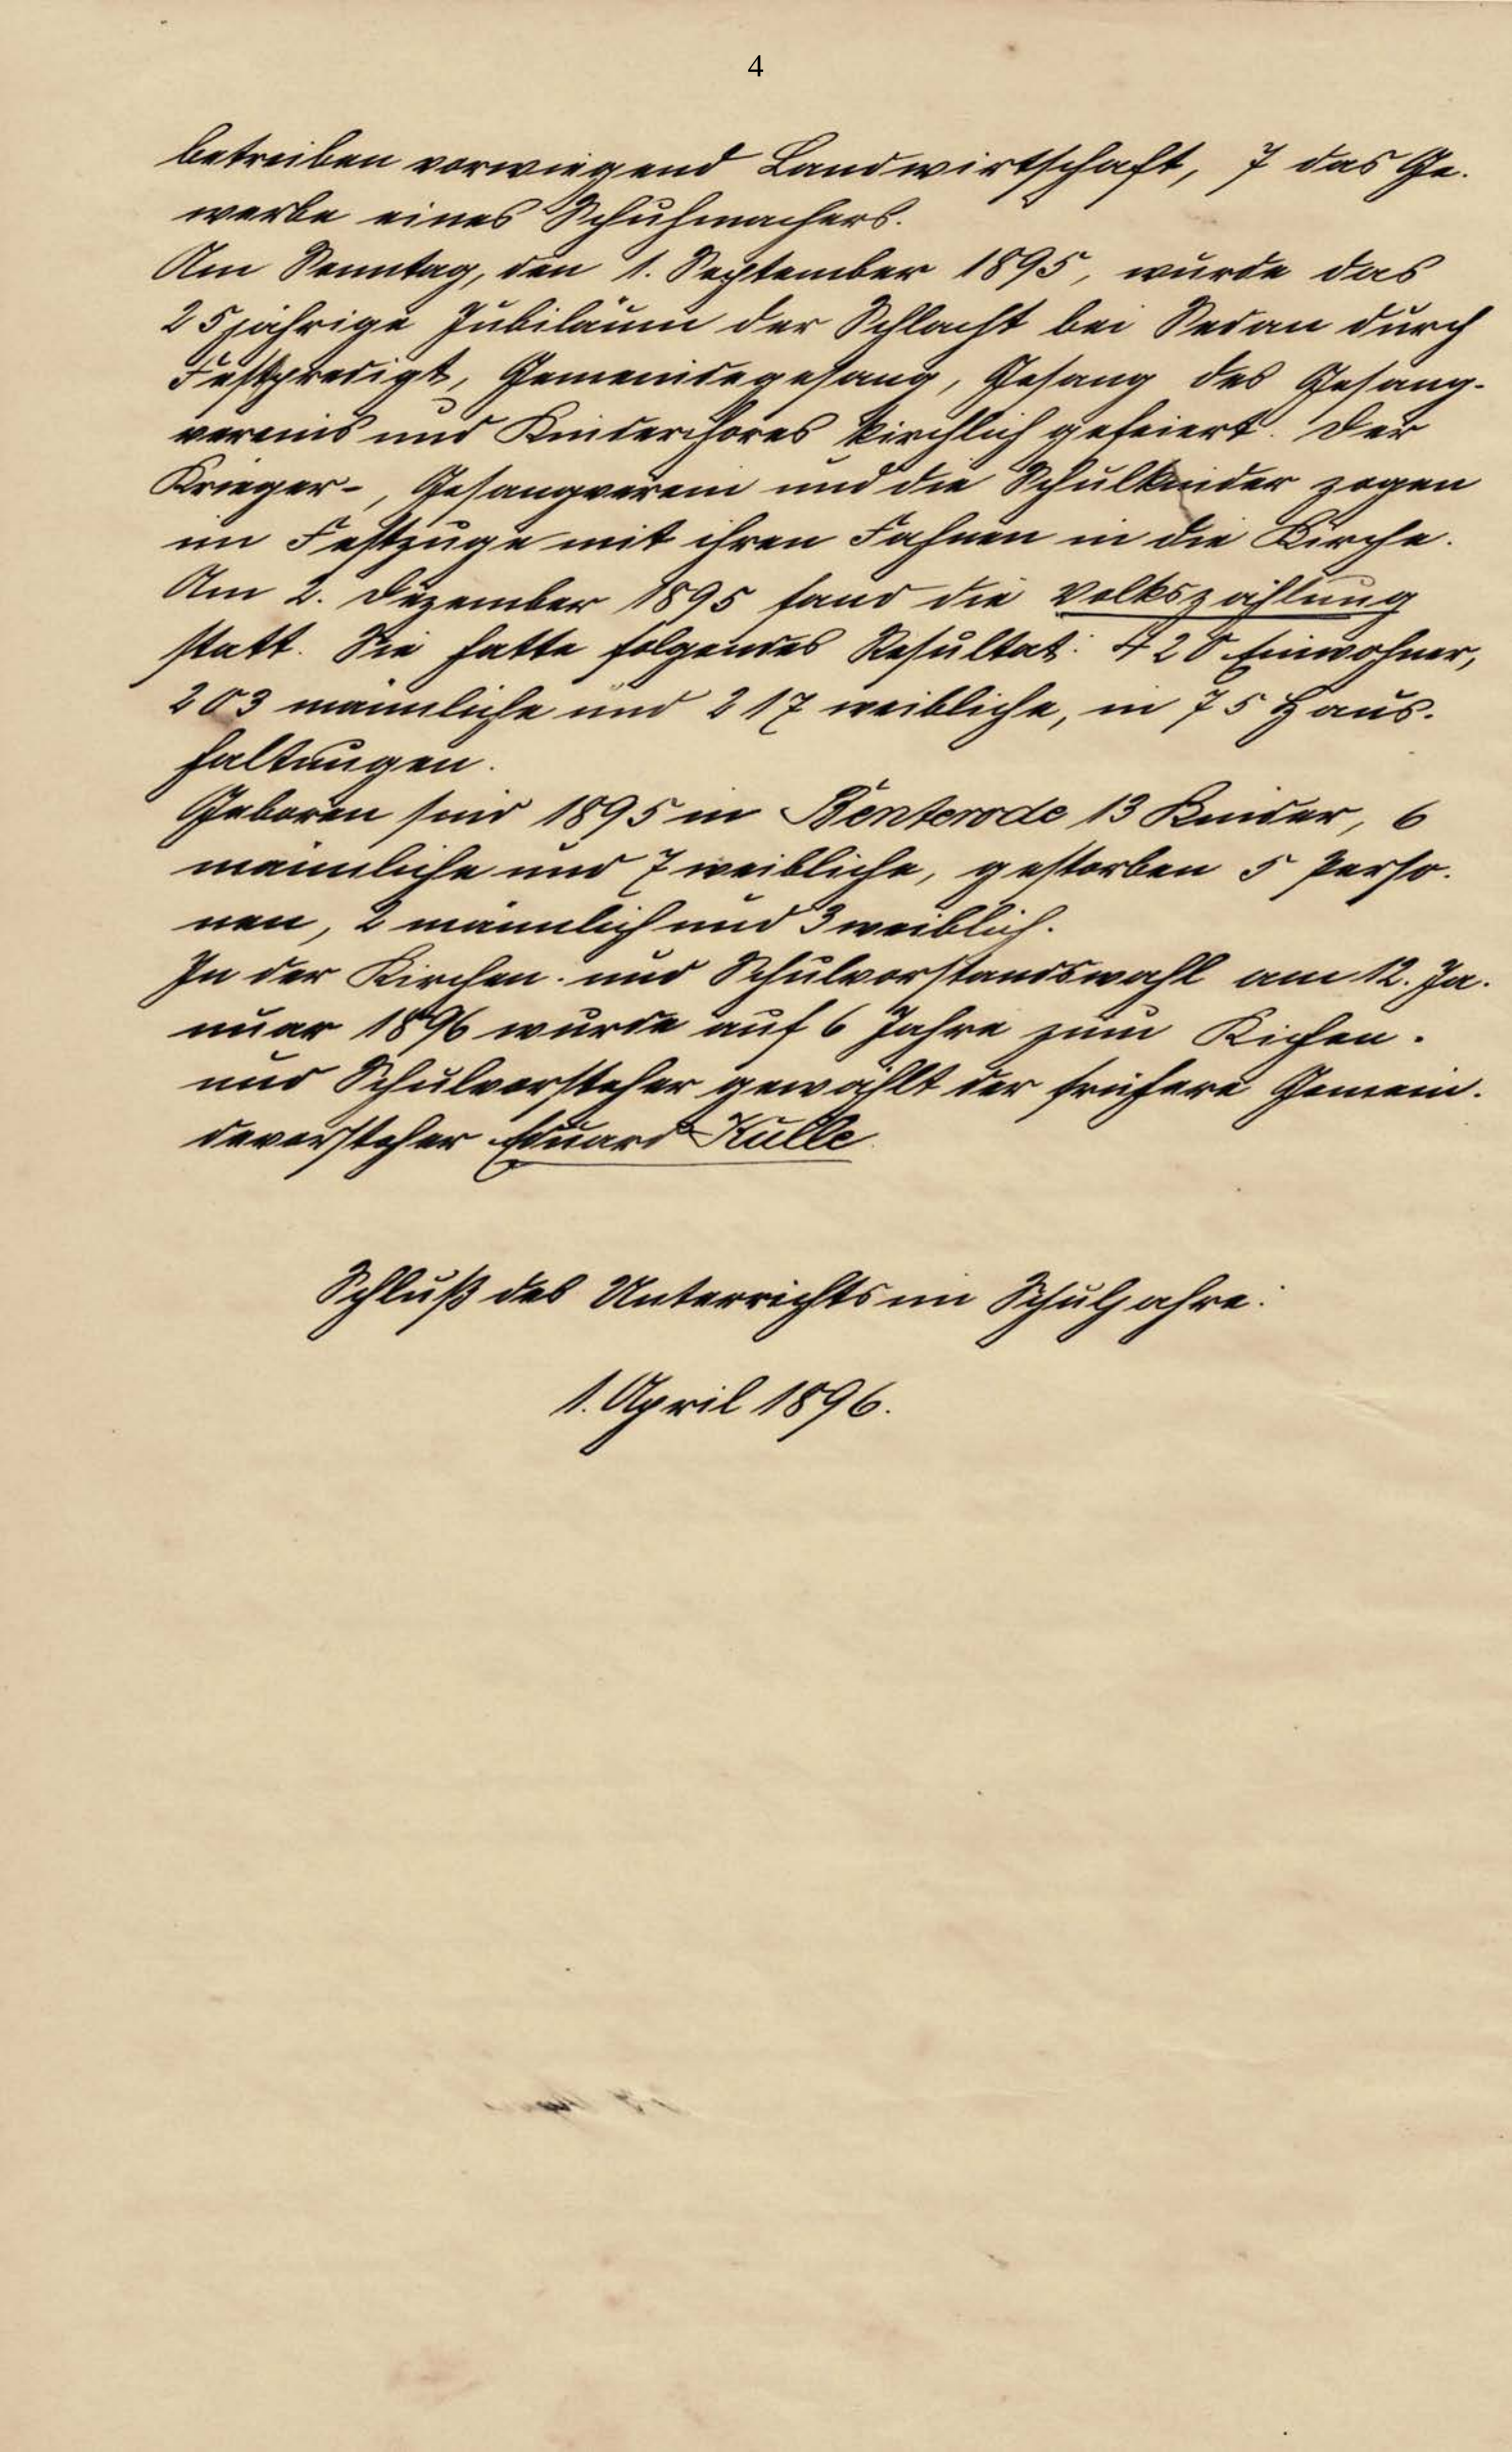 4
betreiben vorwiegend Landwirtschaft, 7 das Ge-
werbe eines Schuhmachers.
Am Sonntag, den 1. September 1895, wurde das
25jährige Jubiläum der Schlacht bei Sedan durch
Festpredigt, Gemeindegesang, Gesang des Gesang-
vereins und Kinderchores kirchlich gefeiert. Der
Krieger-, Gesangverein und die Schulkinder zogen
im Festzuge mit ihren Fahnen in die Kirche.
Am 2. Dezember 1895 fand die Volkszählung
statt. Sie hatte folgendes Resultat: 420 Einwohner,
203 männliche und 217 weibliche, in 75 Haus-
haltungen.
Geboren sind 1895 in Benterode 13 Kinder, 6
männliche und 7 weibliche, gestorben 5 Perso-
nen, 2 männlich und 3 weiblich.
In der Kirchen- und Schulvorstandswahl am 12. Ja-
nuar 1896 wurde auf 6 Jahre zum Kichen-
und Schulvorsteher gewählt der frühere Gemein-
devorsteher Eduard Kulle.
Schluß des Unterrichts im Schuljahre:
1. April 1896.